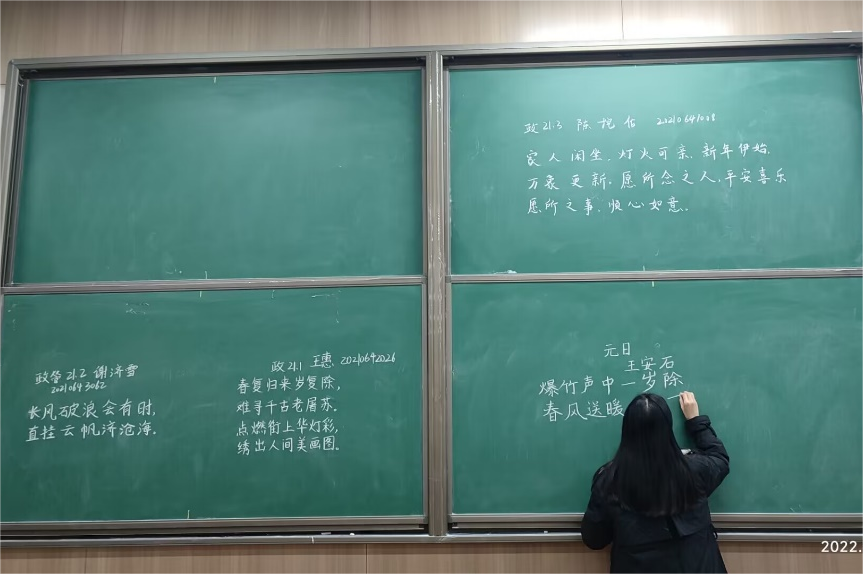 政21.3 陈 怩 佑 20210641018
家人闲坐，灯火可亲，新年伊始，
万象更新。愿所念之人，平安喜乐
愿所之事，顺心如意。
政管21.2 谢济雪
20210643062
长风破浪会有时，
直挂云帆济沧海。
政21.1 王惠 20210642026
春复归来岁复除，
难寻千古老屠苏。
点燃街上华灯彩，
绣出人间美画图。
元日
王安石
爆竹声中一岁除
春风送暖
2022.